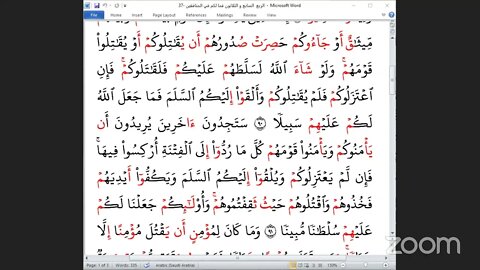 الربع السابع و الثلاثون فما لكم في المنافقين -37 - Microsoft Word
File Home Insert Page Layout References Mailings Review View
مِيثَٰقٌ أَوْ جَآءُوكُمْ حَصِرَتْ صُدُورُهُمْ أَن يُقَٰتِلُوكُمْ أَوْ يُقَٰتِلُوا۟
قَوْمَهُمْ ۚ وَلَوْ شَآءَ ٱللَّهُ لَسَلَّطَهُمْ عَلَيْكُمْ فَلَقَٰتَلُوكُمْ ۚ فَإِنِ
ٱعْتَزَلُوكُمْ فَلَمْ يُقَٰتِلُوكُمْ وَأَلْقَوْا۟ إِلَيْكُمُ ٱلسَّلَمَ فَمَا جَعَلَ ٱللَّهُ
لَكُمْ عَلَيْهِمْ سَبِيلًا ﴿٩٠﴾ سَتَجِدُونَ ءَاخَرِينَ يُرِيدُونَ أَن
يَأْمَنُوكُمْ وَيَأْمَنُوا۟ قَوْمَهُمْ كُلَّ مَا رُدُّوٓا۟ إِلَى ٱلْفِتْنَةِ أُرْكِسُوا۟ فِيهَا ۚ
فَإِن لَّمْ يَعْتَزِلُوكُمْ وَيُلْقُوٓا۟ إِلَيْكُمُ ٱلسَّلَمَ وَيَكُفُّوٓا۟ أَيْدِيَهُمْ
فَخُذُوهُمْ وَٱقْتُلُوهُمْ حَيْثُ ثَقِفْتُمُوهُمْ ۚ وَأُو۟لَٰٓئِكُمْ جَعَلْنَا لَكُمْ
عَلَيْهِمْ سُلْطَٰنًا مُّبِينًا ﴿٩١﴾ وَمَا كَانَ لِمُؤْمِنٍ أَن يَقْتُلَ مُؤْمِنًا إِلَّا
zoom
Words: 505 Arabic (Saudi Arabia) 130%